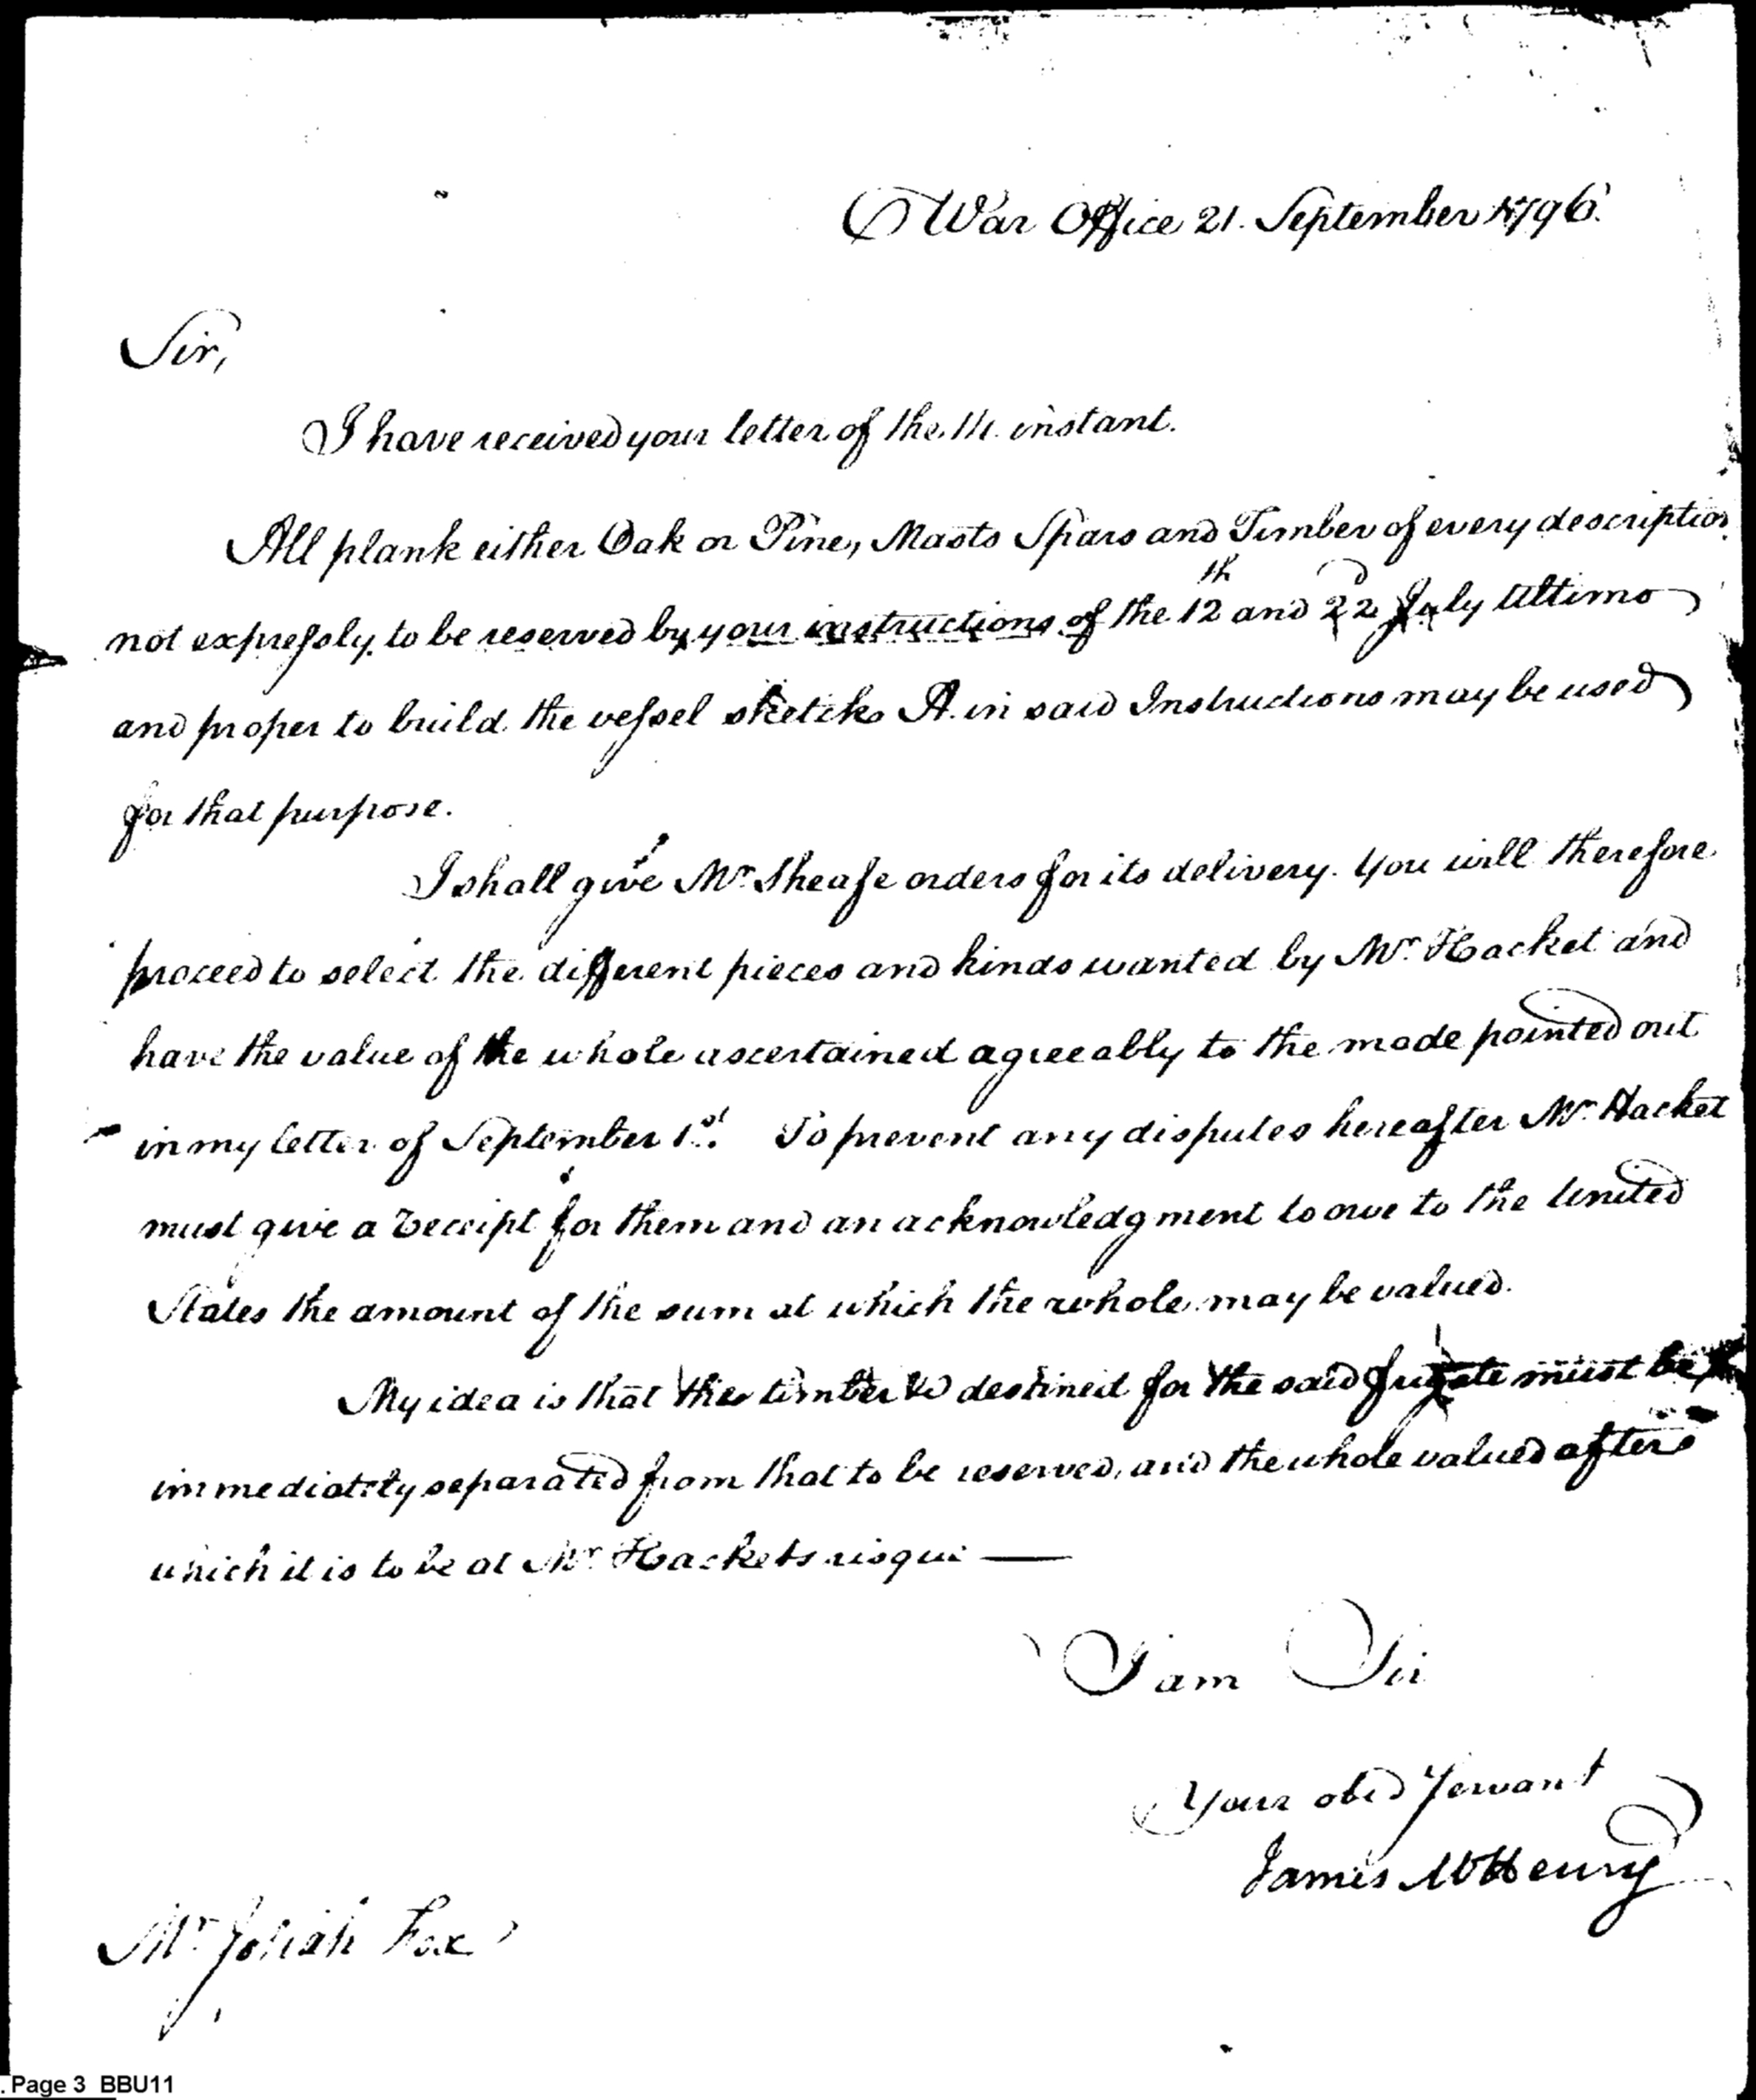 War Office 21. September 1796.
Sir,
I have received your letter of the 14. instant.
All plank either Oak or Pine, Masts Spars and Timber of every description
not expressly to be reserved by your instructions of the 12th and 22d July Ultimo
and proper to build the vessel sketch A. in said Instructions may be used
for that purpose.
I shall give Mr. Sheafe orders for its delivery. You will therefore
proceed to select the different pieces and kinds wanted by Mr. Hacket and
have the value of the whole ascertained agreeably to the mode pointed out
in my letter of September 1st. To prevent any disputes hereafter Mr. Hacket
must give a receipt for them and an acknowledgment to owe to the United
States the amount of the sum at which the whole may be valued.
My idea is that the timber destined for the said frigate must be
immediately separated from that to be reserved, and the whole valued after
which it is to be at Mr. Hackets risque —
I am Sir
Your obed Servant
James McHenry
Mr. Josiah Fox
. Page 3 BBU11